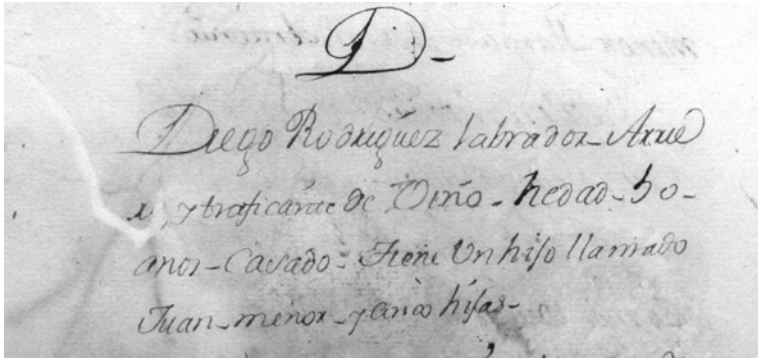 D-
Diego Rodriguez labrador- Arrie
ro, y traficante de Vino- hedad- 50-
anos- Casado- Tiene Un hijo llamado
Juan- menor- y cinco hijas-